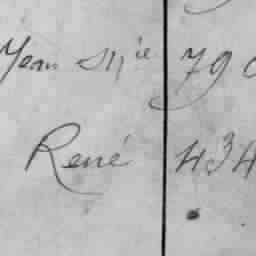 Jean Mie 79
René 434